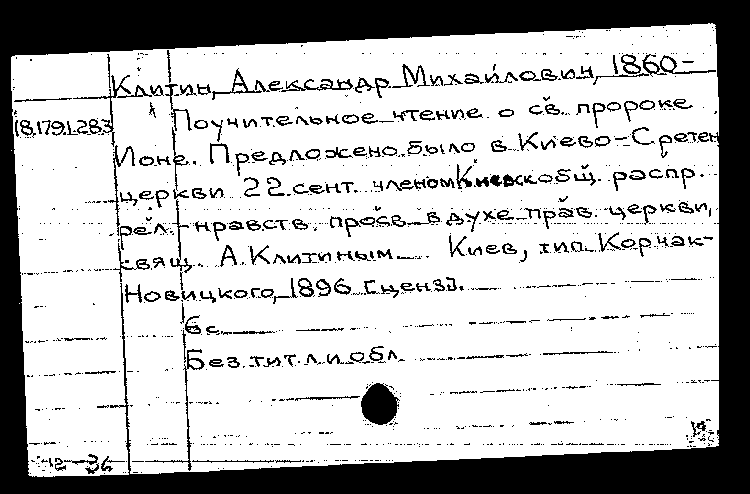 Клитин, Александр Михайлович, 1860-
Поучительное чтение о св. пророке
18.179.1.283
Ионе. Предложено было в Киево-Сретен
церкви 22 сент. членом Киевск общ. распр.
рел.-нравств. просв. в духе прав. церкви,
свящ. А. Клитиным. Киев, тип. Корчак-
Новицкого, 1896 [ценз].
6 с.
Без тит. л. и обл.
36